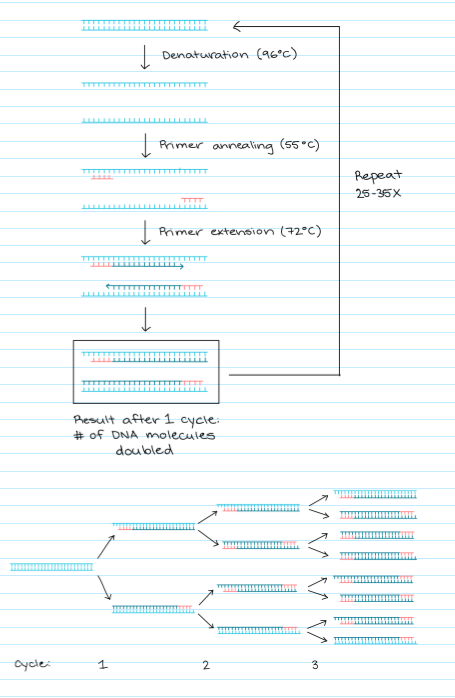 Denaturation (96°C)
Primer annealing (55°C)
Repeat
25-35X
Primer extension (72°C)
Result after 1 cycle:
# of DNA molecules
doubled
Cycle: 1 2 3